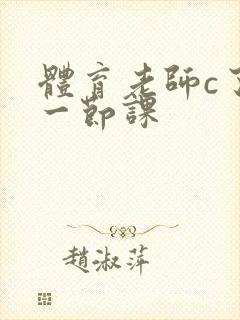 體育老師c了
一節課
趙淑萍